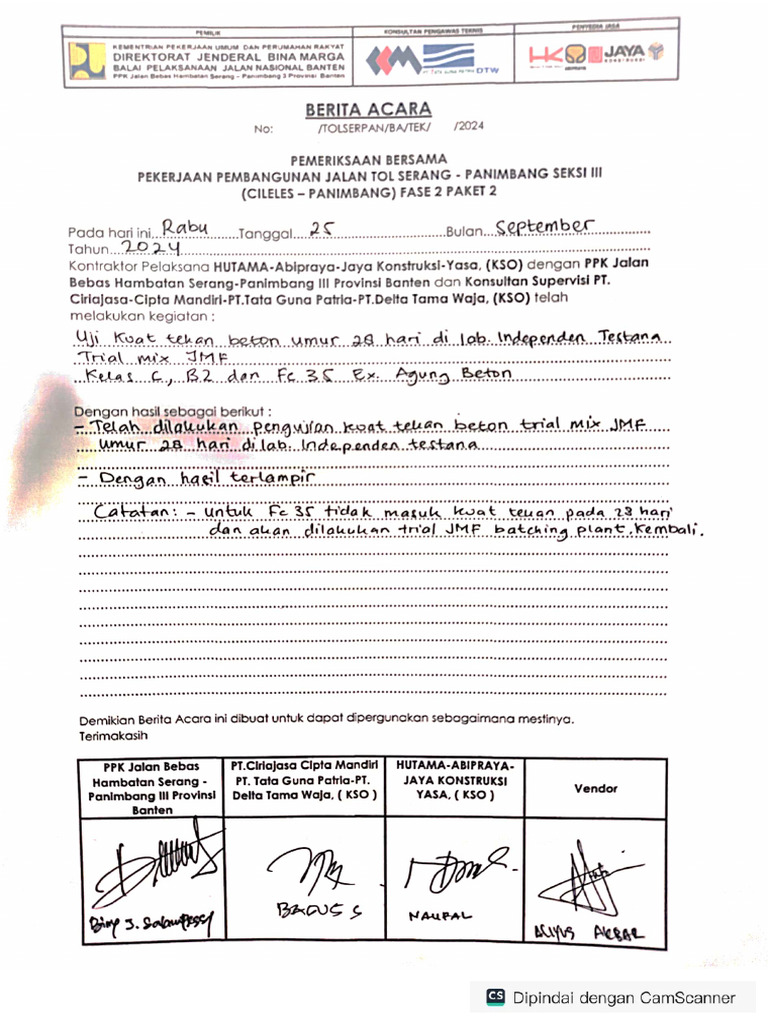 PEMILIK
KONSULTAN PENGAWAS TEKNIS
PENYEDIA JASA
KEMENTRIAN PEKERJAAN UMUM DAN PERUMAHAN RAKYAT
DIREKTORAT JENDERAL BINA MARGA
BALAI PELAKSANAAN JALAN NASIONAL BANTEN
PPK Jalan Bebas Hambatan Serang – Panimbang 3 Provinsi Banten
PT. TATA GUNA PATRIA
DTW
HK
JAYA
KONSTRUKSI
BERITA ACARA
No: /TOLSERPAN/BA/TEK/ /2024
PEMERIKSAAN BERSAMA
PEKERJAAN PEMBANGUNAN JALAN TOL SERANG - PANIMBANG SEKSI III
(CILELES – PANIMBANG) FASE 2 PAKET 2
Pada hari ini Rabu Tanggal 25 Bulan September
Tahun 2024
Kontraktor Pelaksana HUTAMA-Abipraya-Jaya Konstruksi-Yasa, (KSO) dengan PPK Jalan
Bebas Hambatan Serang-Panimbang III Provinsi Banten dan Konsultan Supervisi PT.
Ciriajasa-Cipta Mandiri-PT.Tata Guna Patria-PT.Delta Tama Waja, (KSO) telah
melakukan kegiatan :
Uji Kuat tekan beton umur 28 hari di lab. Independen Testana
Trial mix JMF
Kelas C, B2 dan Fc 35 Ex. Agung Beton
Dengan hasil sebagai berikut :
- Telah dilakukan pengujian kuat tekan beton trial mix JMF
umur 28 hari di lab. Independen testana
- Dengan hasil terlampir
Catatan: - untuk Fc 35 tidak masuk kuat tekan pada 28 hari
dan akan dilakukan trial JMF batching plant kembali.
Demikian Berita Acara ini dibuat untuk dapat dipergunakan sebagaimana mestinya.
Terimakasih
PPK Jalan Bebas
Hambatan Serang -
Panimbang III Provinsi
Banten
PT.Ciriajasa Cipta Mandiri
PT. Tata Guna Patria-PT.
Delta Tama Waja, ( KSO )
HUTAMA-ABIPRAYA-
JAYA KONSTRUKSI
YASA, ( KSO )
Vendor
Bimo J.
BAGUS S
NAUFAL
AKBAR
CS Dipindai dengan CamScanner